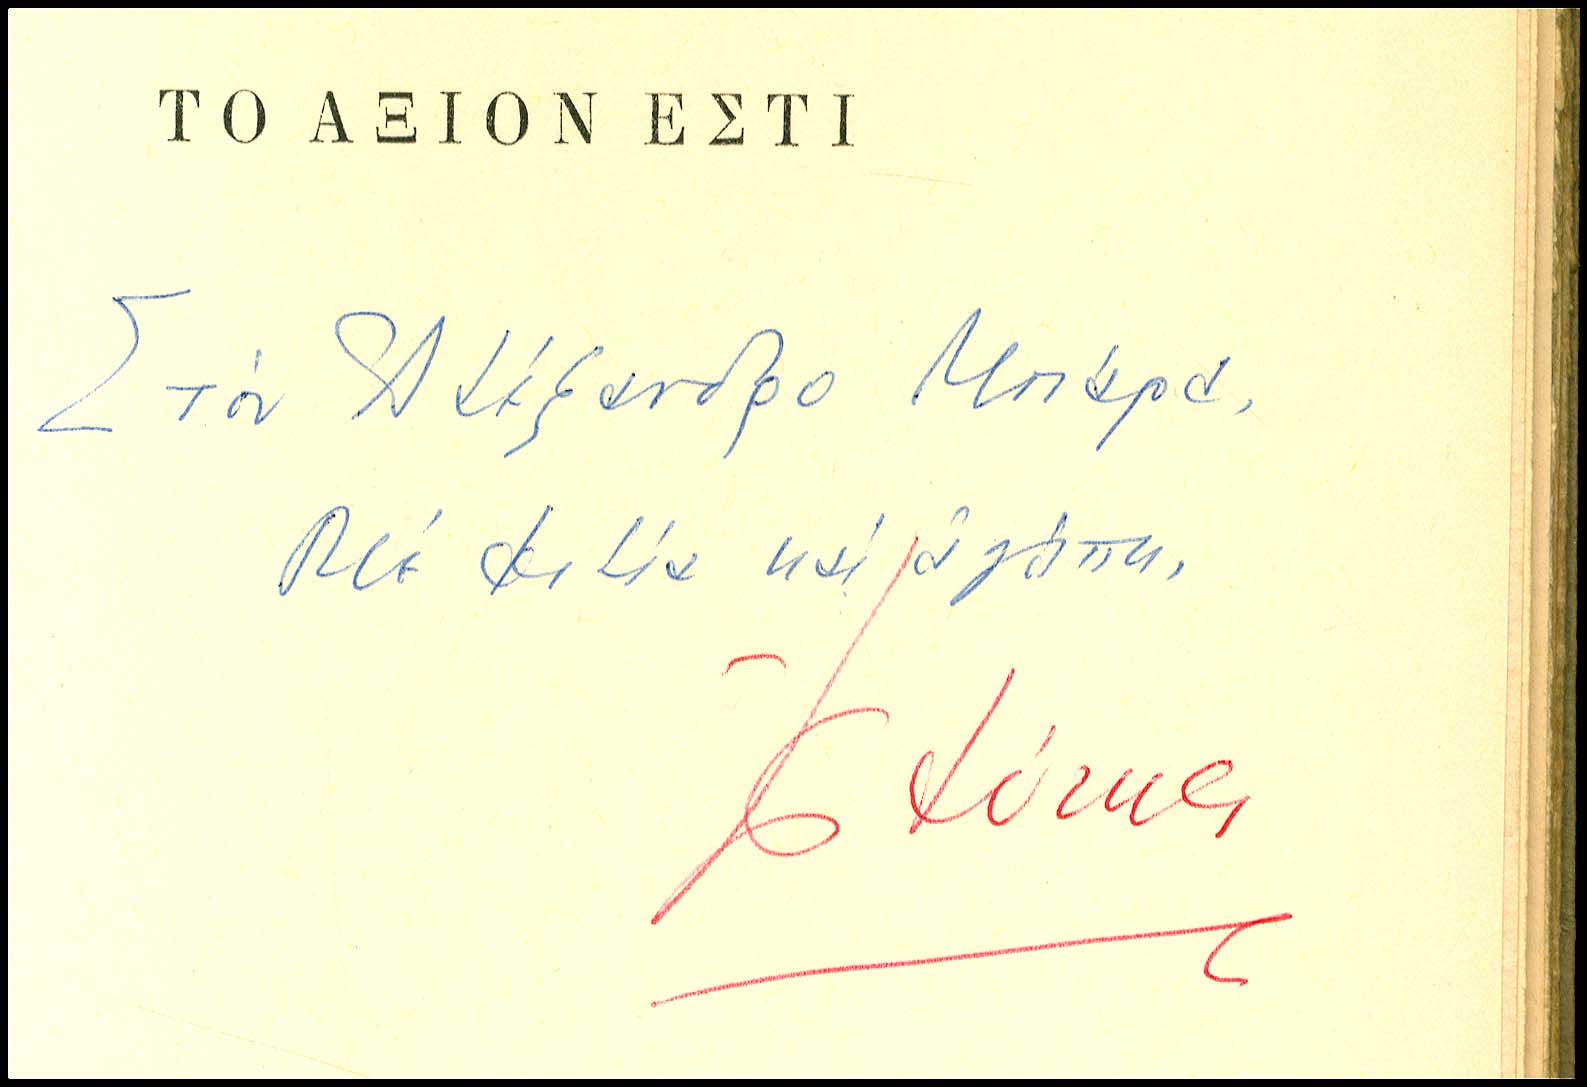 ΤΟ ΑΞΙΟΝ ΕΣΤΙ
Στὸν Ἀλέξανδρο Μπάρα,
Μὲ φιλία καὶ ἀγάπη,
Ἐλύτης